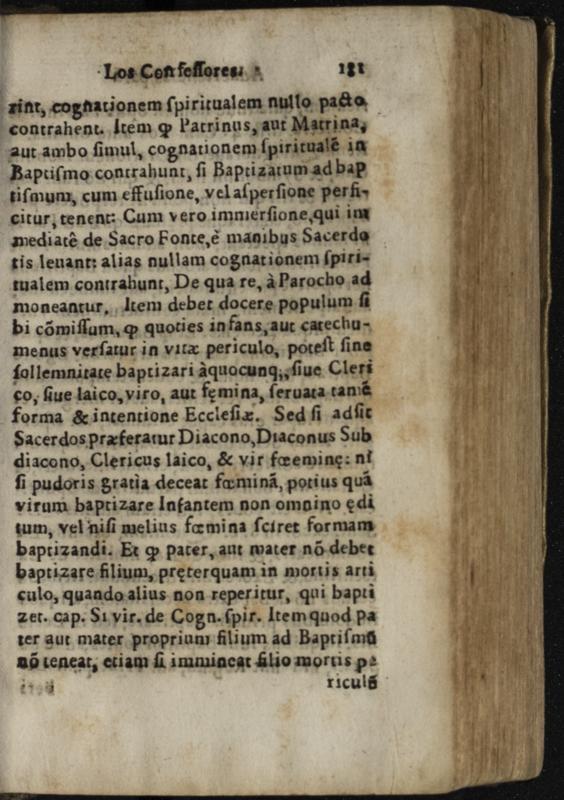 Los Confessores. 181
rint, cognationem ſpiritualem nullo pacto
contrahent. Item ꝙ Patrinus, aut Matrina,
aut ambo ſimul, cognationem ſpiritualẽ in
Baptiſmo contrahunt, ſi Baptizatum ad bap
tiſmum, cum effuſione, vel aſperſione perfi-
citur, tenent: Cum vero immerſione, qui im
mediatê de Sacro Fonte, è manibus Sacerdo
tis leuant: alias nullam cognationem ſpiri-
tualem contrahunt, De qua re, à Parocho ad
moneantur. Item debet docere populum ſi
bi cõmiſſum, ꝙ quoties infans, aut catechu-
menus verſatur in vitæ periculo, poteſt ſine
ſollemnitate baptizari àquocunq;, ſiue Cleri
co, ſiue laico, viro, aut fęmina, ſeruata tamẽ
forma & intentione Eccleſiæ. Sed ſi adſit
Sacerdos præferatur Diacono, Diaconus Sub
diacono, Clericus laico, & vir fœeminę: ni
ſi pudoris gratia deceat fœminã, potius quã
virum baptizare Infantem non omnino ędi
tum, vel niſi melius fœmina ſciret formam
baptizandi. Et ꝙ pater, aut mater nõ debet
baptizare filium, pręterquam in mortis arti
culo, quando alius non reperitur, qui bapti
zet. cap. Si vir. de Cogn. ſpir. Item quod pa
ter aut mater proprium filium ad Baptiſmũ
nõ teneat, etiam ſi immineat filio mortis pe
riculũ